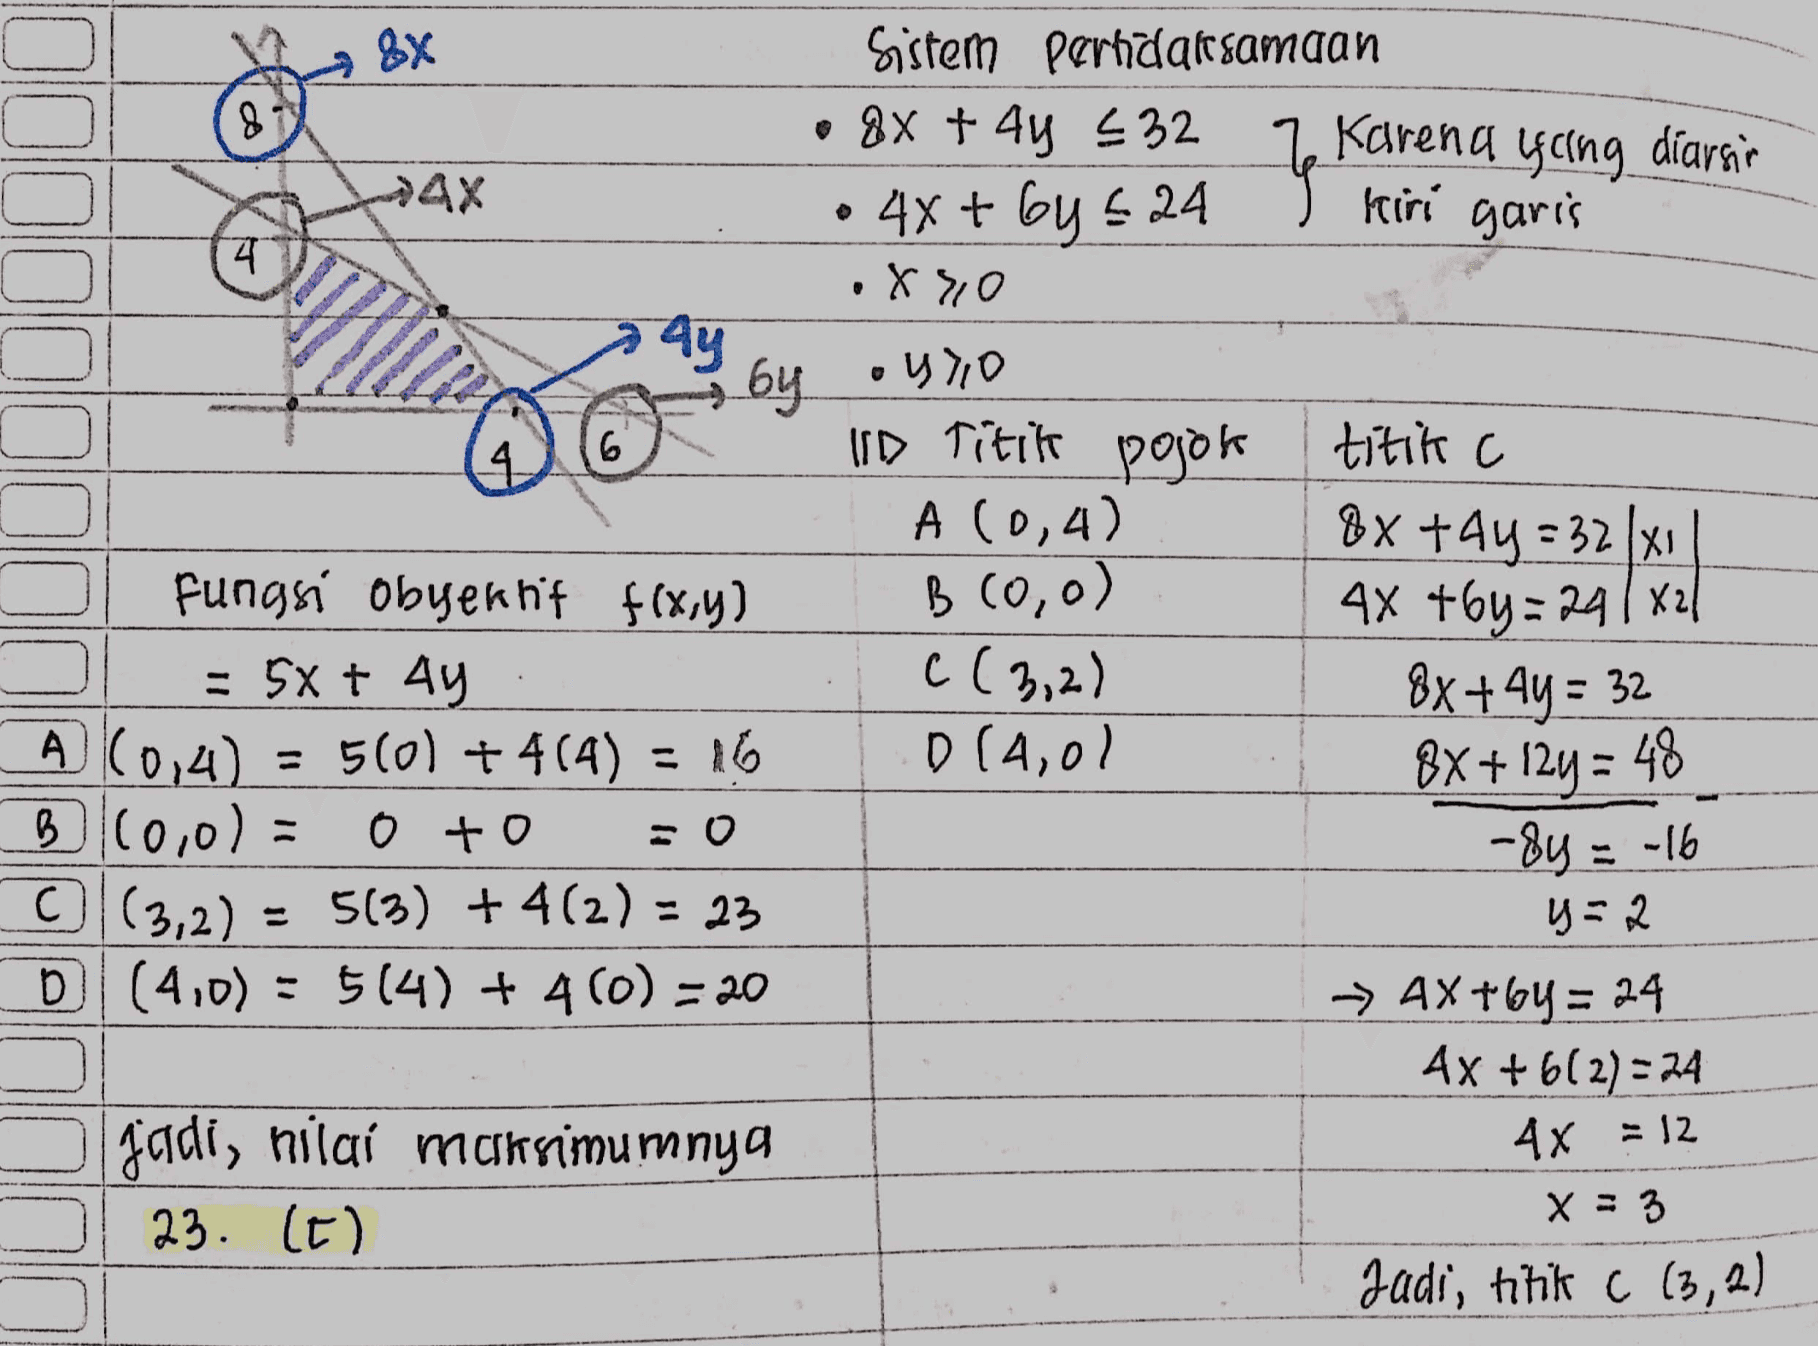 8 → 8x
4 → 4x
4 → 4y
6 → 6y
Sistem Pertidaksamaan
• 8x + 4y ≤ 32 } Karena yang diarsir
• 4x + 6y ≤ 24 kiri garis
• x ≥ 0
• y ≥ 0
Titik pojok
A (0,4)
B (0,0)
C (3,2)
D (4,0)
titik C
8x + 4y = 32 | x1 |
4x + 6y = 24 | x2 |
8x + 4y = 32
8x + 12y = 48 -
-8y = -16
y = 2
→ 4x + 6y = 24
4x + 6(2) = 24
4x = 12
x = 3
Jadi, titik C (3,2)
Fungsi Obyektif f(x,y)
= 5x + 4y
A (0,4) = 5(0) + 4(4) = 16
B (0,0) = 0 + 0 = 0
C (3,2) = 5(3) + 4(2) = 23
D (4,0) = 5(4) + 4(0) = 20
Jadi, nilai maksimumnya
23. (E)